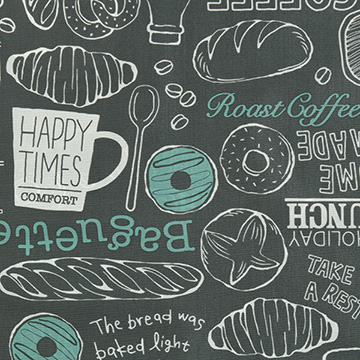 COFFEE
HAPPY
TIMES
COMFORT
Roast Coffee
HOME
MADE
LUNCH
HOLIDAY
Baguette
TAKE A
REST
The bread was
baked light